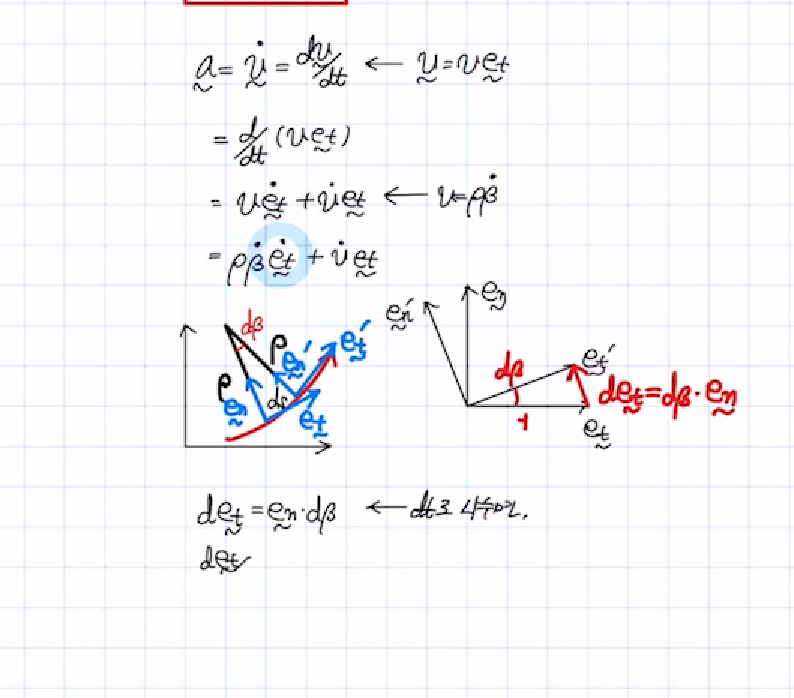 a = v̇ = dv/dt ← v = ve_t
= d/dt (ve_t)
= vė_t + v̇e_t ← v = ρβ̇
= ρβ̇ė_t + v̇e_t
dβ
ρ
e_n'
e_t'
ρ
e_n
ds
e_t
e_n'
e_n
e_t'
dβ
de_t = dβ · e_n
1
e_t
de_t = e_n · dβ ← dt로 나누면.
de_t